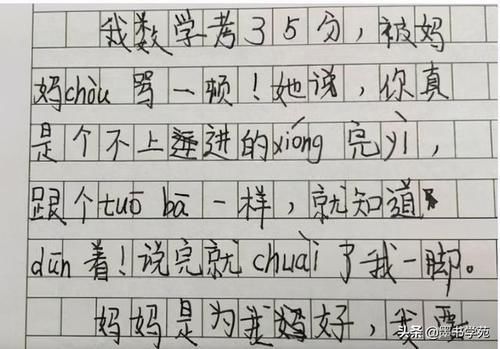 我数学考35分，被妈
妈chòu 骂一顿！她说，你真
是个不上进的xióng 完yì，
跟个tuō bā 一样，就知道
dūn 着！说完就 chuài 了我一脚。
妈妈是为我好，我要
头条@墨书学苑